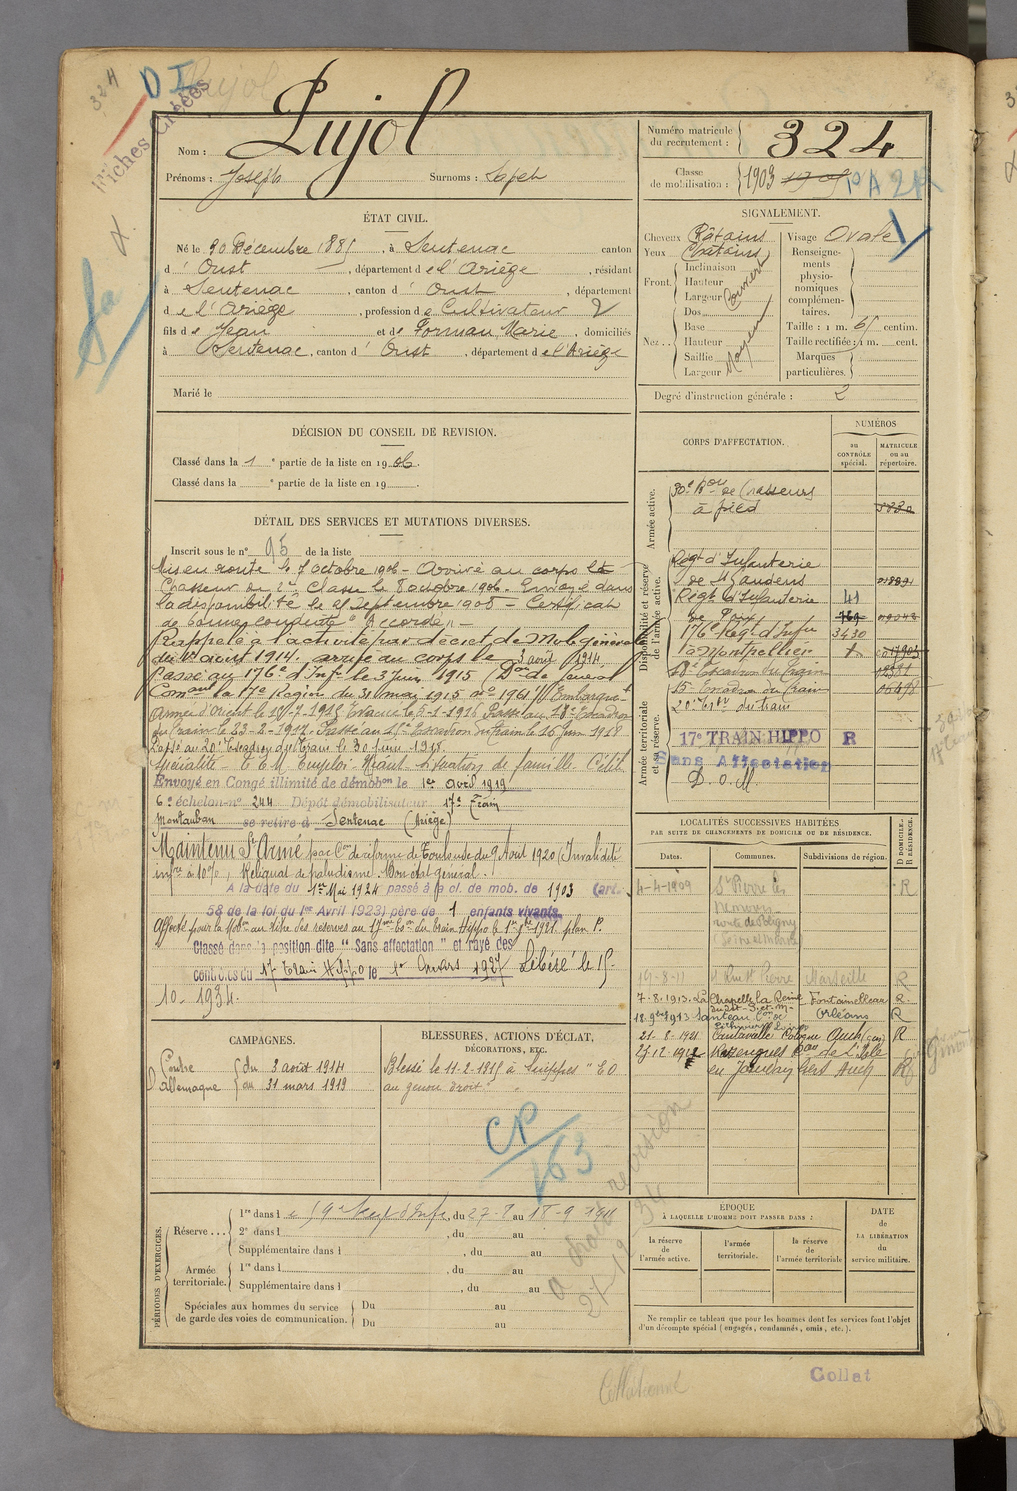 324
D I
Fiches Créées
Nom : Pujol
Prénoms : Joseph Surnoms :
Numéro matricule du recrutement : 324
Classe de mobilisation : 1903
ÉTAT CIVIL.
Né le 20 Décembre 1885, à Sentenac canton
d' Oust, département de l'Ariège, résidant
à Sentenac, canton d' Oust, département
de l'Ariège, profession de Cultivateur 2
fils de Jean et de Forman Marie, domiciliés
à Sentenac, canton d' Oust, département de l'Ariège
Marié le
SIGNALEMENT.
Cheveux Châtains Visage Ovale
Yeux Châtains
Front. Inclinaison Hauteur Largeur Couvert
Nez. Dos Base Hauteur Saillie Largeur Moyen
Renseignements physionomiques complémentaires.
Taille : 1 m. 65 centim.
Taille rectifiée : 1 m. cent.
Marques particulières.
Degré d'instruction générale : 2
DÉCISION DU CONSEIL DE REVISION.
Classé dans la 1e partie de la liste en 1906.
Classé dans la e partie de la liste en 19 .
DÉTAIL DES SERVICES ET MUTATIONS DIVERSES.
Inscrit sous le n° 95 de la liste
Mis en route le 7 octobre 1906 - Arrivé au corps le
Chasseur de 2e Classe le 8 octobre 1906. Envoyé dans
la disponibilité le 25 Septembre 1908 - Certificat
de bonne conduite "Accordé" -
Rappelé à l'activité par décret de Mob Générale
du 1er août 1914. arrivé au corps le 3 août 1914
Passé au 176e d'Inf le 3 Juin 1915 (Don de General
Comant la 17e Région du 31 mai 1915 no 1961) Embarqué
Armée d'Orient le Evacué le 5-1-1916 Passé au 18e Escadron
du train le 23-2-1917. Passé au 15e Escadron du train le 16 Juin 1918
Passé au 20e Escadron du train le 30 Juin 1918.
Envoyé en Congé illimité de démobon le 1er Avril 1919
6e échelon no 244 Dépôt démobilisateur 17e Train
Montauban se retire à Sentenac (Ariège)
Maintenu Sce Armé par Con de réforme de Toulouse du 9 Août 1920 (Invalidité
infre à 10%, Reliquat de paludisme. Bon état général.
A la date du 1er Mai 1924 passé à la cl. de mob. de 1903 (art.
58 de la loi du 1er Avril 1923) père de 1 enfants vivants.
Affecté pour la Mobon au titre des réserves au 17me Eon du train Hippo le 1921. plan P.
Classé dans la position dite "Sans affectation" et rayé des
contrôles du 17 Train Hippo le 1er Janvier 1927 Libéré le 15-
10-1934.
CORPS D'AFFECTATION.
NUMÉROS
au CONTRÔLE spécial.
MATRICULE ou au répertoire.
Armée active.
30e Bon de Chasseurs
à pied
Disponibilité et réserve de l'armée active.
Régt d'Infanterie
de St Gaudens
Régt d'Infanterie 41
de Foix 769
176e Régt d'Infie 3430
à Montpellier
18e Escadron du Train
15e Escadron du train
20e Eson du train
Armée territoriale et sa réserve.
17e TRAIN HIPPO R
Sans Affectation
D. O. M.
LOCALITÉS SUCCESSIVES HABITÉES
PAR SUITE DE CHANGEMENTS DE DOMICILE OU DE RÉSIDENCE.
Dates. Communes. Subdivisions de région. D DOMICILE. R RÉSIDENCE.
4-4-1909 St Pierre lès Nemours R
19-8-11 Rue St Pierre Marseille R
7-8-1913 La Chapelle la Reine Fontainebleau R
18-9bre 1913 Santeau Orléans R
21-8-1921 Cologne Auch (Gers) R
en Jourdain Gers Auch R
CAMPAGNES.
Contre l'Allemagne du 3 août 1914
au 31 mars 1919
BLESSURES, ACTIONS D'ÉCLAT,
DÉCORATIONS, ETC.
Blessé le 11-2-1915 à Suippes "E O
au genou droit"
CP
163
PÉRIODES D'EXERCICES.
Réserve ... 1re dans le 59e Regt d'Infie, du 27-8 au 18-9 1911
2e dans l , du au
Supplémentaire dans l , du au
Armée territoriale. 1re dans l , du au
Supplémentaire dans l , du au
Spéciales aux hommes du service de garde des voies de communication. Du au
Du au
EPOQUE
À LAQUELLE L'HOMME DOIT PASSER DANS :
la réserve de l'armée active.
l'armée territoriale.
la réserve de l'armée territoriale
DATE de LA LIBÉRATION du service militaire.
Ne remplir ce tableau que pour les hommes dont les services font l'objet
d'un décompte spécial (engagés, condamnés, omis, etc.).
Collationné
Collat